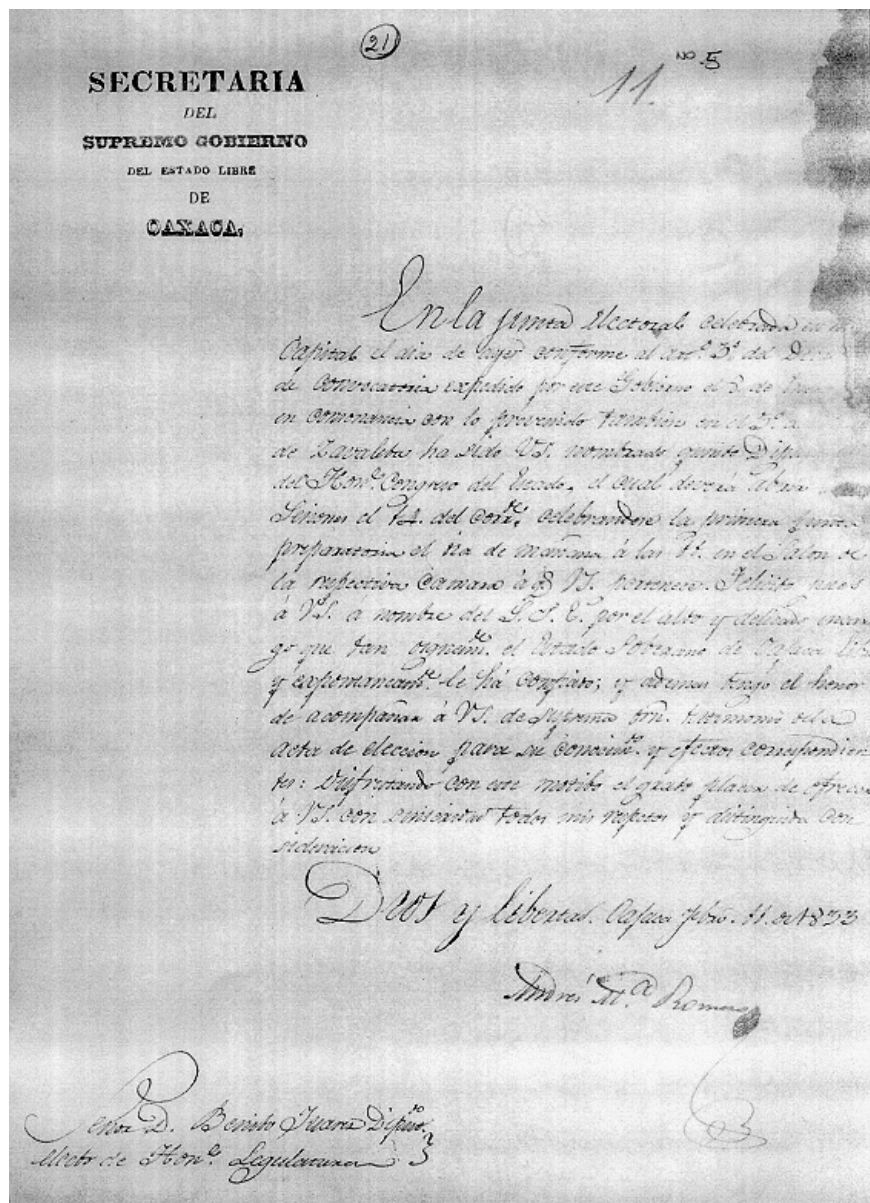 21
No. 5
11.
SECRETARIA
DEL
SUPREMO GOBIERNO
DEL ESTADO LIBRE
DE
OAXACA,
En la junta Electoral celebrada en
Capital el dia de ayer conforme al artº 3º del
de Convocatoria expedido por este Gobierno el 3 de
en consonancia con lo prevenido tambien en el 5º
de Zavaleta ha sido VS. nombrado quinto
del Honº Congreso del Estado, el cual deverá abrir
Seciones el 12. del corrte celebrandose la primera junta
preparatoria el dia de mañana á las en el Salon de
la respectiva Camara á qe VS. pertenece. Felicito pues
á VS. a nombre del E. por el alto y delicado encar
go que tan dignamte el Estado Soberano de Oajaca
y le há confiado; y ademas tengo el honor
de acompañar á VS. de Suprema orn. testimonio del
acta de eleccion para su conocimto y efectos correspondien
tes: disfrutando con este motibo el grato placer de
á VS. con todos mis respetos y distinguida con
sideracion
Dios y libertad. Oajaca febro. 11. de 1833
Andres Mª Romero
Señor D. Benito Juares Dipdo
electo de Honº Legislatura